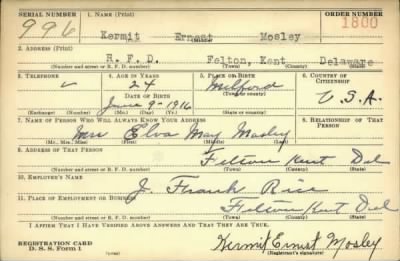 SERIAL NUMBER 1. NAME (Print) ORDER NUMBER
996 Kermit Ernest Mosley 1800
(First) (Middle) (Last)
2. ADDRESS (Print)
R.F.D. Felton, Kent Delaware
(Number and street or R. F. D. number) (Town) (County) (State)
3. TELEPHONE 4. AGE IN YEARS 5. PLACE OF BIRTH 6. COUNTRY OF CITIZENSHIP
24 Milford U.S.A.
DATE OF BIRTH (Town or county)
June 9-1916
(Exchange) (Number) (Mo.) (Day) (Yr.) (State or country)
7. NAME OF PERSON WHO WILL ALWAYS KNOW YOUR ADDRESS 8. RELATIONSHIP OF THAT PERSON
Mrs Elva May Mosley
(Mr., Mrs., Miss) (First) (Middle) (Last)
9. ADDRESS OF THAT PERSON
Felton Kent Del
(Number and street or R. F. D. number) (Town) (County) (State)
10. EMPLOYER'S NAME
J. Frank Rice
11. PLACE OF EMPLOYMENT OR BUSINESS
Felton Kent Del
(Number and street or R. F. D. number) (Town) (County) (State)
I AFFIRM THAT I HAVE VERIFIED ABOVE ANSWERS AND THAT THEY ARE TRUE.
REGISTRATION CARD
D. S. S. Form 1 (over) Kermit Ernest Mosley
(Registrant's signature)